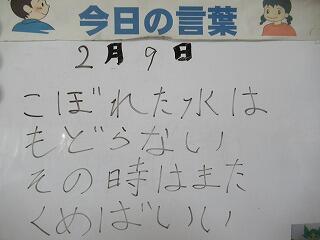 今日の言葉
2月9日
こぼれた水は
もどらない
その時はまた
くめばいい